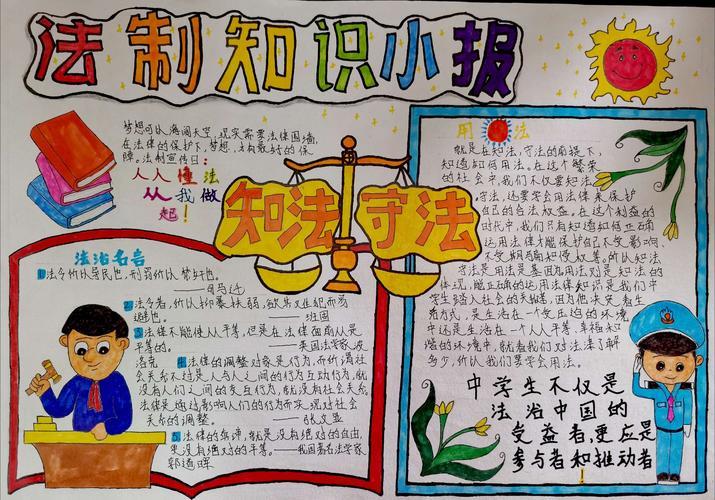 法制知识小报
梦想可以海阔天空,现实需要法律围墙,
在法律的保护下,梦想,才有最好的保
障。法制宣传日:
人人懂法
从我做
起!
知法守法
法治名言
1法令所以导民也,刑罚所以禁奸也。
——司马迁
2法令者,所以抑暴扶弱,欲其难犯而易
避也。——班固
3法律不能使人人平等,但是在法律面前人人是
平等的。——英国法学家波
洛克
4法律的调整对象是行为,而所谓社
会关系不过是人与人之间的行为互动行为,
没有人们之间的交互行为,就没有社会关系。
法律是通过影响人们的行为而实现对社会
关系的调整。
——张文显
5法律的条律,就是没有绝对的自由,
更没有绝对的平等。——我国著名法学家
郭道晖
用法
就是在知法,守法的前提下,
知道如何用法。在这个繁荣
的社会中,我们不仅要知法,
守法,还要学会用法律来保护
自己的合法权益。在这个利益的
时代中,我们只有知道如何正确
运用法律才能保护自己不受影响、
不受期骗和侵权等。所以知法
守法是用法是基因为用法则是知法的
体现,能正确的运用法律知识是我们中
学生踏入社会的关键,因为他决定着生
活方式,是生活在一个受压迫的环境
中还是生活在一个人人平等,幸福和
谐的环境中,就看我们对法津了解
多少,所以我们要学会用法。
中学生不仅是
法治中国的
受益者,更应是
参与者和推动者